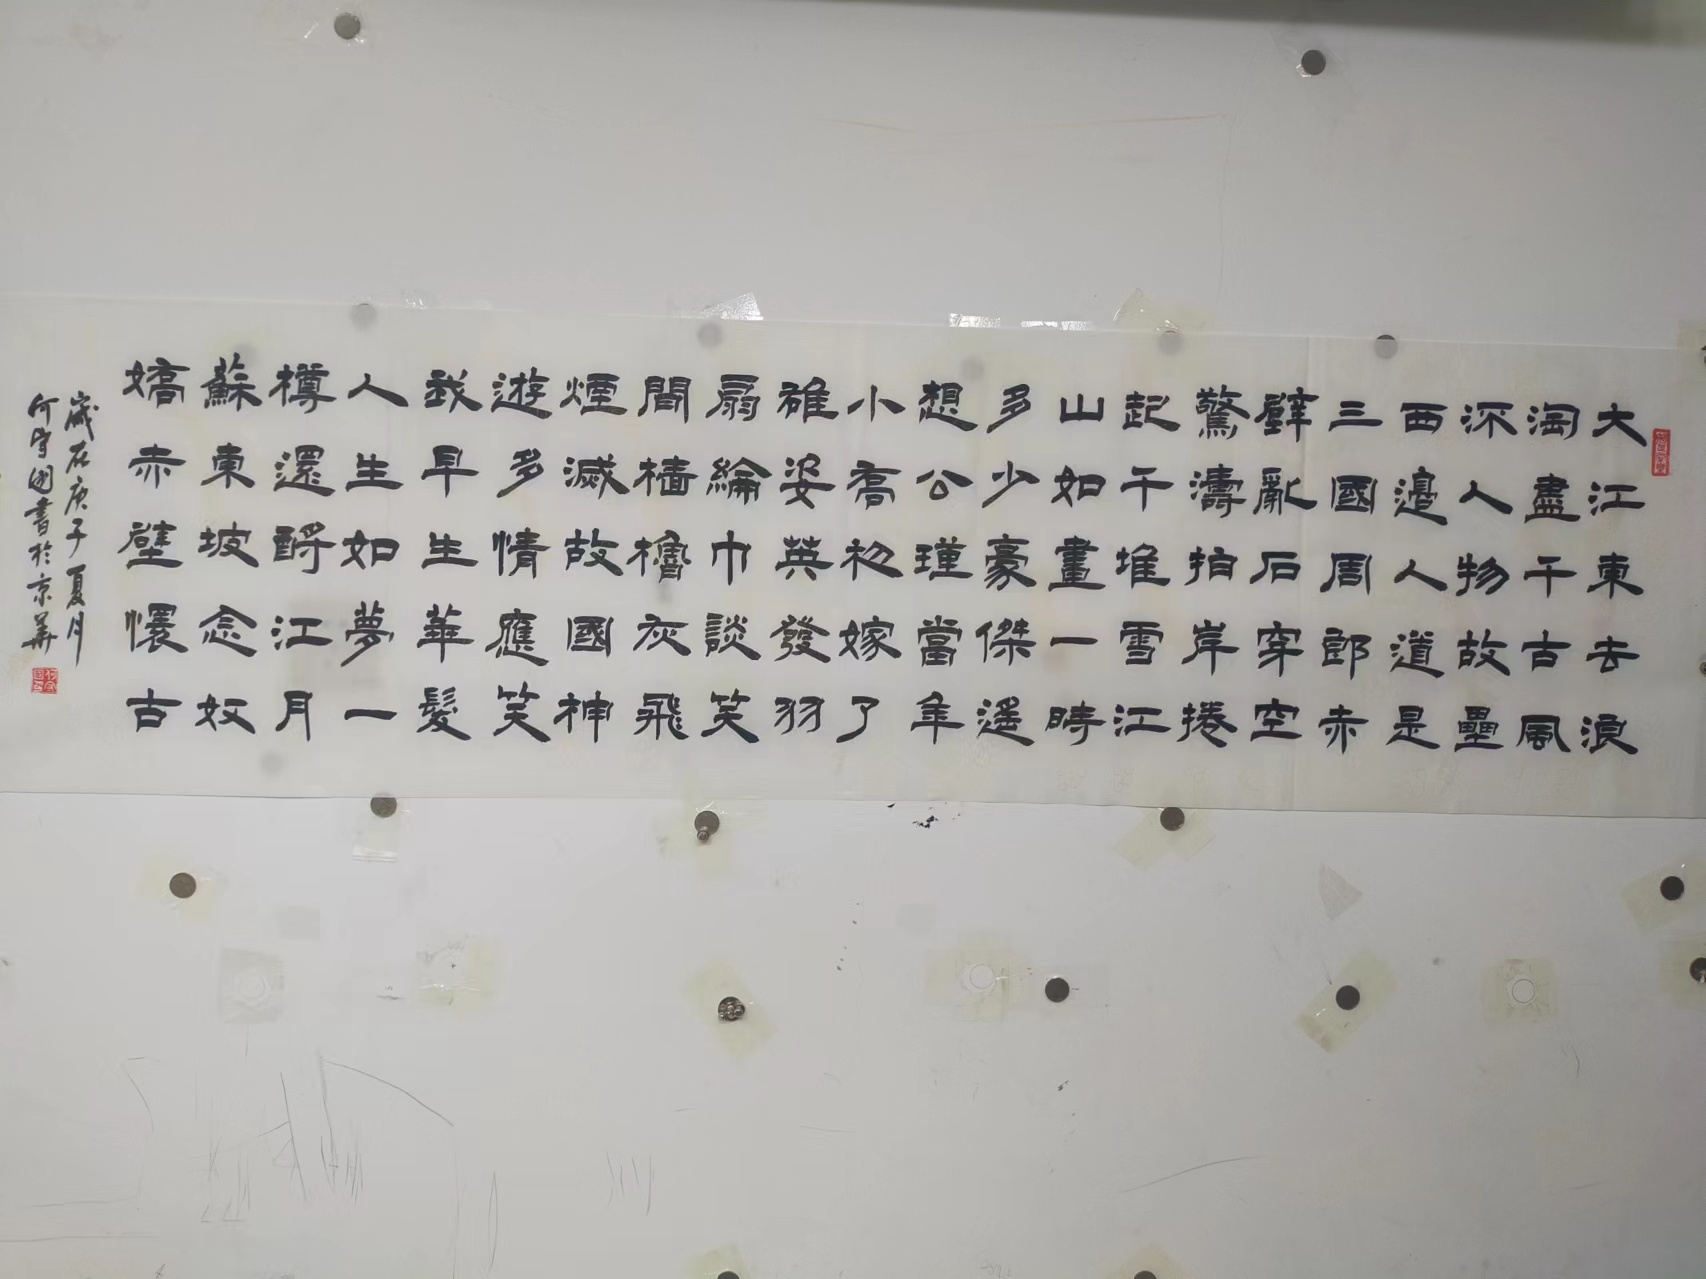 大江東去浪
淘盡千古風
流人物故壘
西邊人道是
三國周郎赤
壁亂石穿空
驚濤拍岸捲
起千堆雪江
山如畫一時
多少豪傑遥
想公瑾當年
小喬初嫁了
雄姿英發羽
扇綸巾談笑
間檣櫓灰飛
煙滅故國神
遊多情應笑
我早生華髮
人生如夢一
樽還酹江月
蘇東坡念奴
嬌赤壁懷古
歲在庚子夏月
守國書於京華